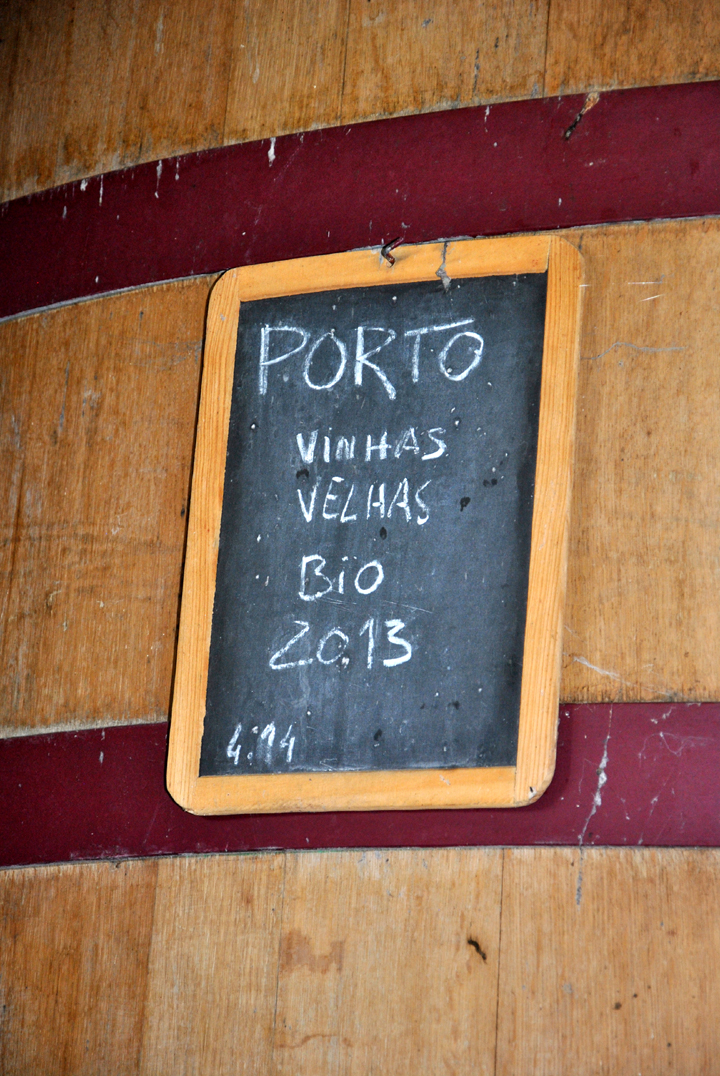 PORTO
VINHAS
VELHAS
BIO
2013
4:14